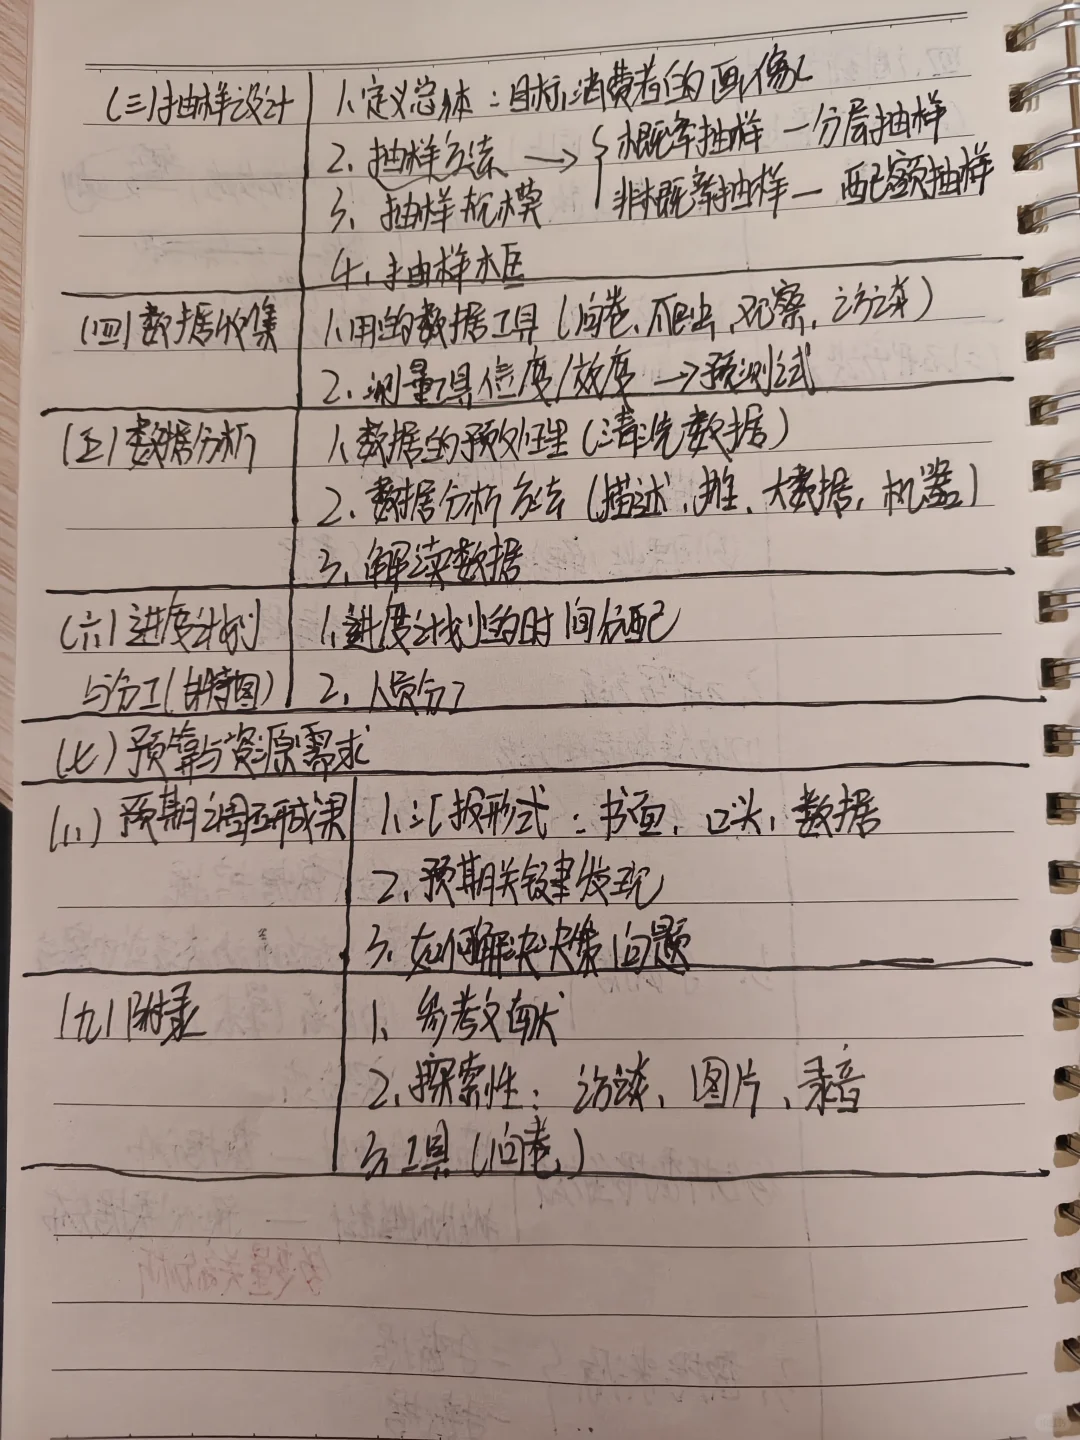 (三)抽样设计 1、定义总体：目标消费者的画像
2、抽样方法 → { 概率抽样 — 分层抽样
非概率抽样 — 配额抽样
3、抽样规模
4、抽样框
(四)数据收集 1、用的数据工具(问卷、爬虫、观察、访谈)
2、测量工具信度/效度 → 预测试
(五)数据分析 1、数据的预处理(清洗数据)
2、数据分析方法(描述、推、大数据、机器)
3、解读数据
(六)进度计划 1、进度计划的时间分配
与分工(甘特图) 2、人员分工
(七)预算与资源需求
(八)预期调研成果 1、汇报形式：书面、口头、数据
2、预期关键发现
3、如何解决决策问题
(九)附录 1、参考文献
2、探索性：访谈、图片、录音
3、工具(问卷、)